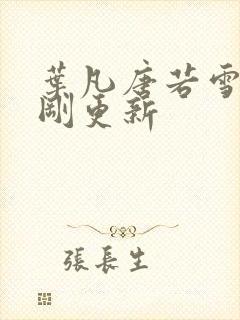 葉凡唐若雪
剛更新
張長生